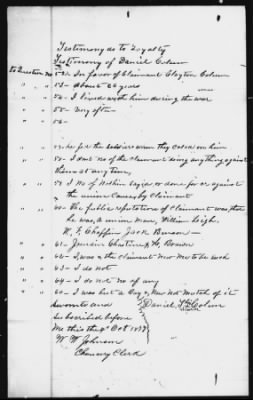 Testimony as to Loyalty
Testimony of Daniel Colum
to Question no 52 In favor of Claimant Clayton Colum
" " 53 - About 26 years
" " 54 - I lived with him during the war
" " 55 - Very often
" " 56 -
" " he for the soldiers when they called on him
" " 58 - I dont no of the claimant doing anything against
them at any time,
" " 59 I No of nothing said or done for or against
the union Causes by Claimant
" " 60 - The public reputation of Claimant was that
he was a union man, William Leigh.
W. F. Chaffin Jack Benson
" " 61 - Jundin
" " 62 - I was the claimant
" " 63 - I do not
" " 64 - I do not no of any
" " 60 - I was but a Boy & New Not Mutch of it
Sworn to and
Subscribed before
Me this the Oct
W W Johnson
Chancery Clerk
Daniel Colum